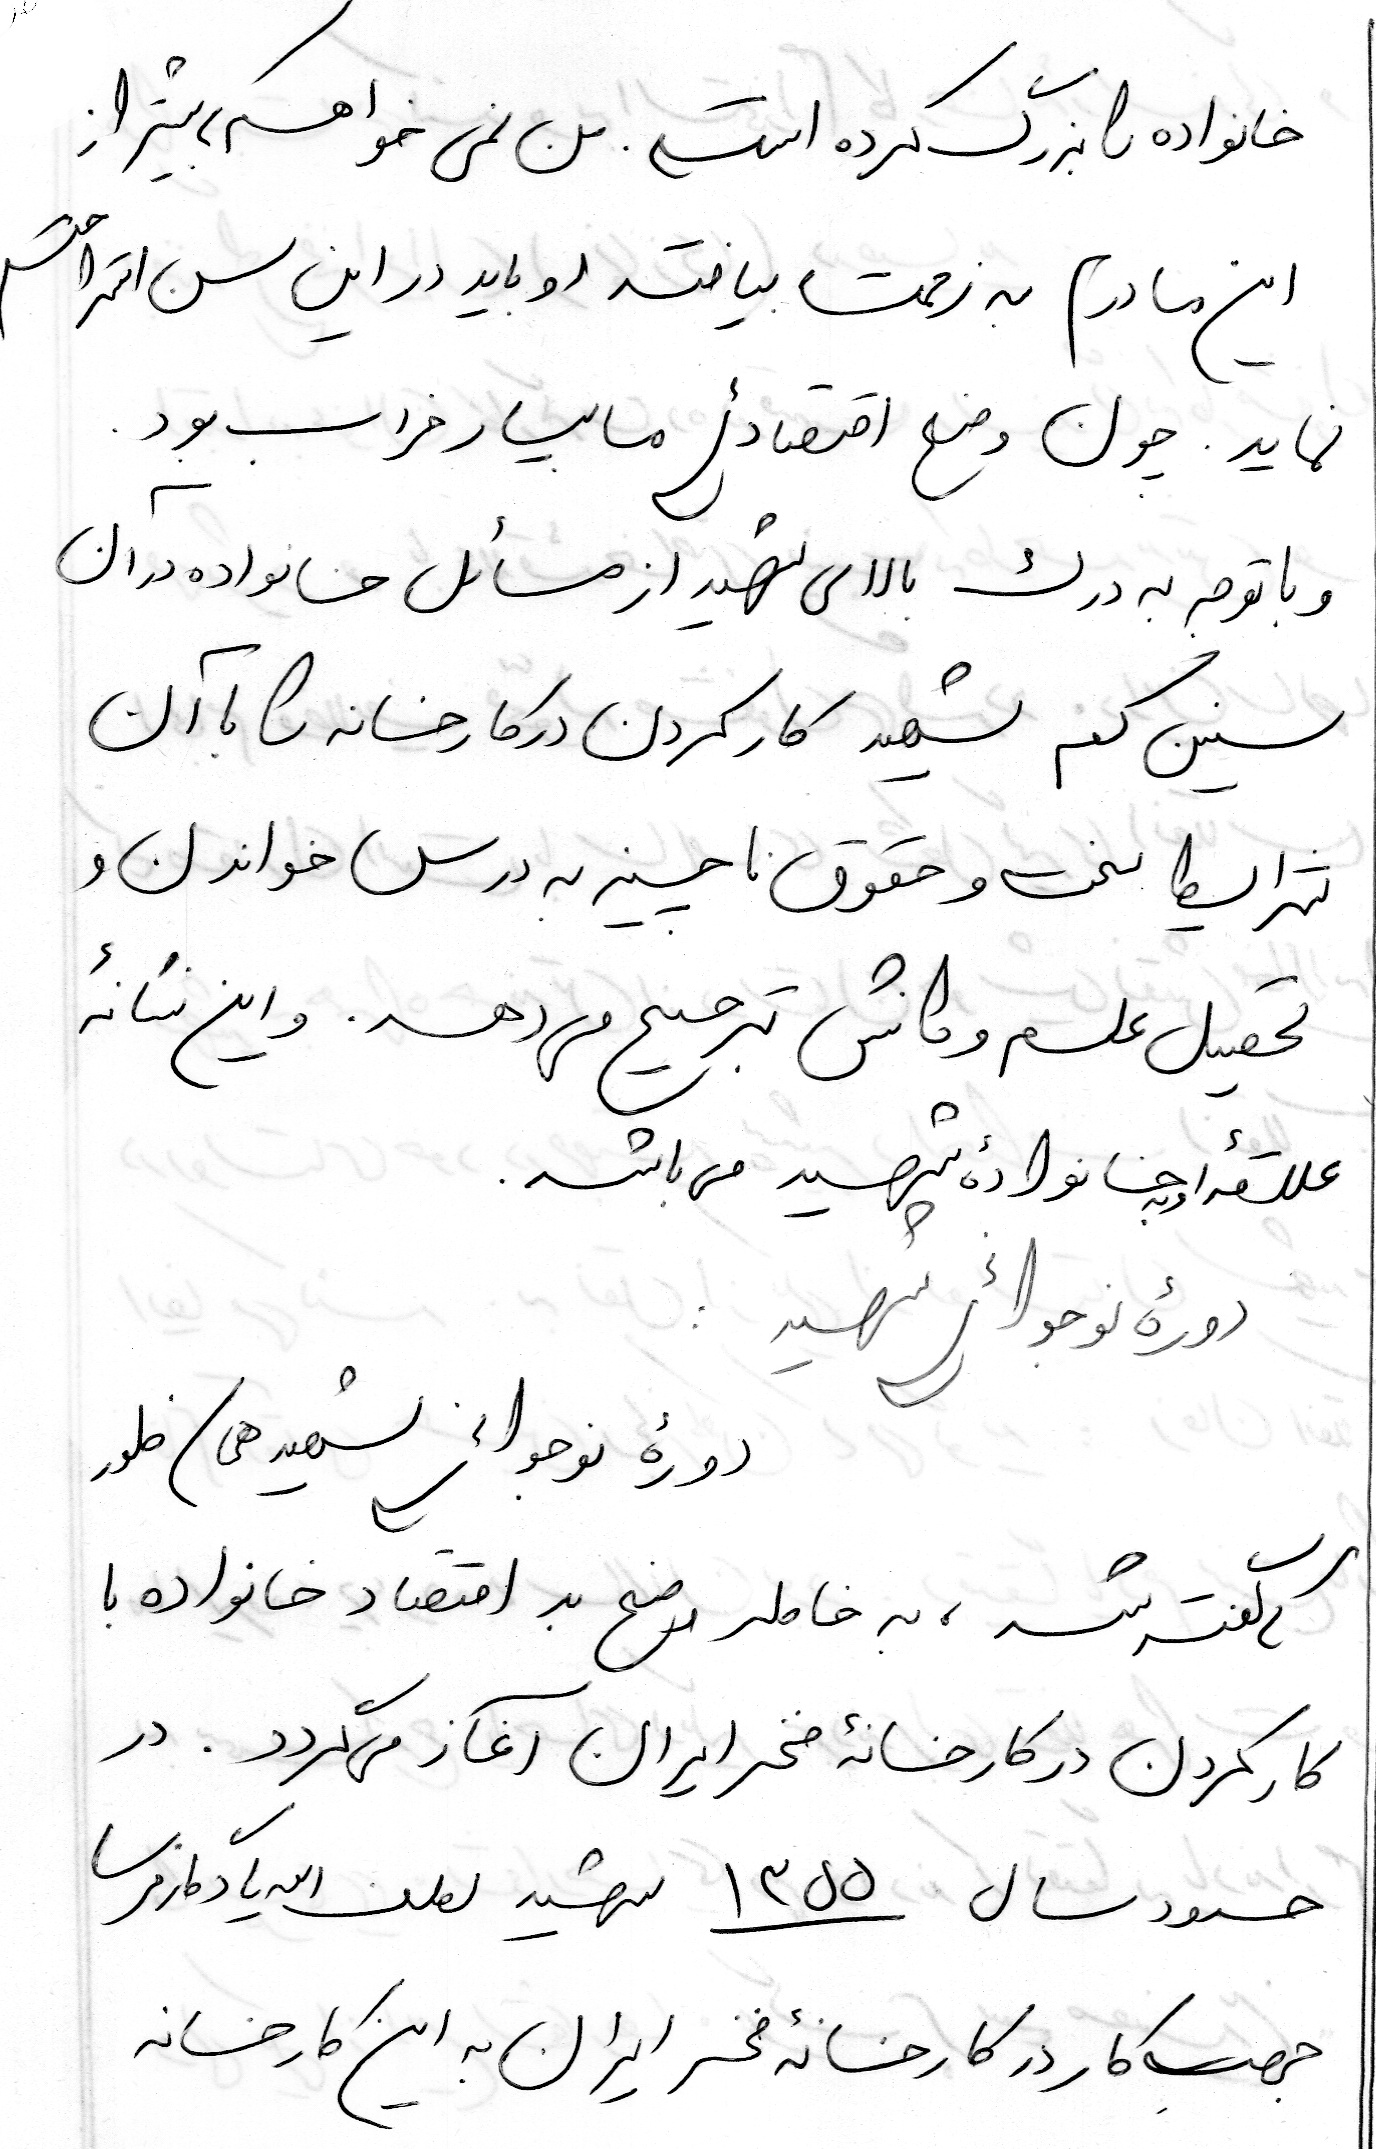 خانواده را بزرگ کرده است. من نمی خواهم، بیشتر از
این مادرم به زحمت بیافتد او باید در این سن استراحت
نماید. چون وضع اقتصادئی ما بسیار خراب بود.
و با توجه به درک بالای شهید از مسائل خانواده در آن
سنین کم شهید کار کردن در کارخانه را با آن
شرایط سخت و حقوق ناچیز به درس خواندن و
تحصیل علم و دانش ترجیح می دهد. و این نشانهٔ
علاقهٔ او به خانوادهٔ شهید می باشد.
دورهٔ نوجوانی شهید :
دورهٔ نوجوانی شهید همانطور
که گفته شد، به خاطر وضع بد اقتصاد خانواده با
کار کردن در کارخانهٔ فخر ایران آغاز می گردد. در
حدود سال ۱۳۵۵ شهید لطف اله یادگار فرسا
جهت کار در کارخانهٔ فخر ایران به این کارخانه